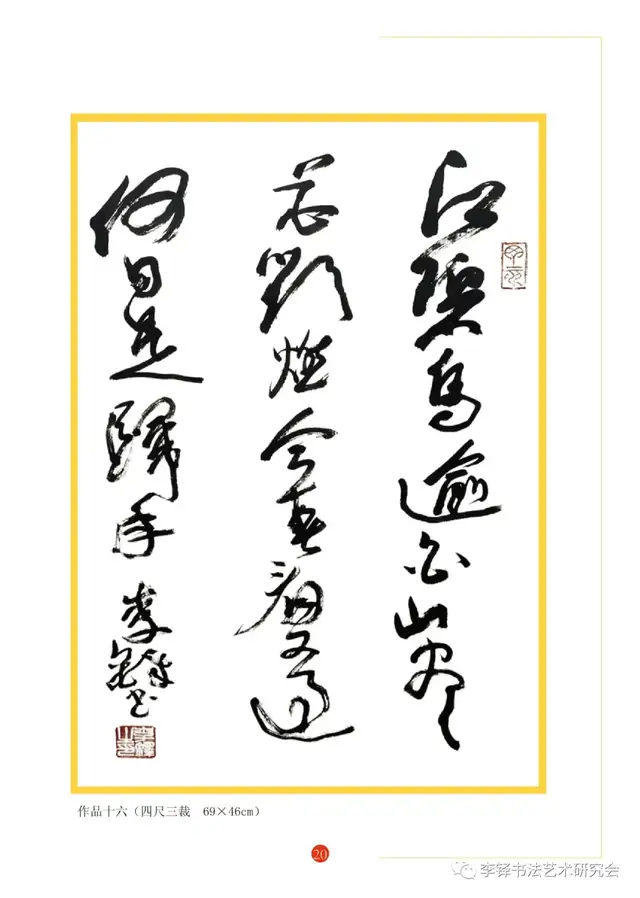 江碧鳥逾白山青
花欲燃今春看又過
何日是歸年 李鐸書
作品十六（四尺三裁 69×46cm）
20
李铎书法艺术研究会